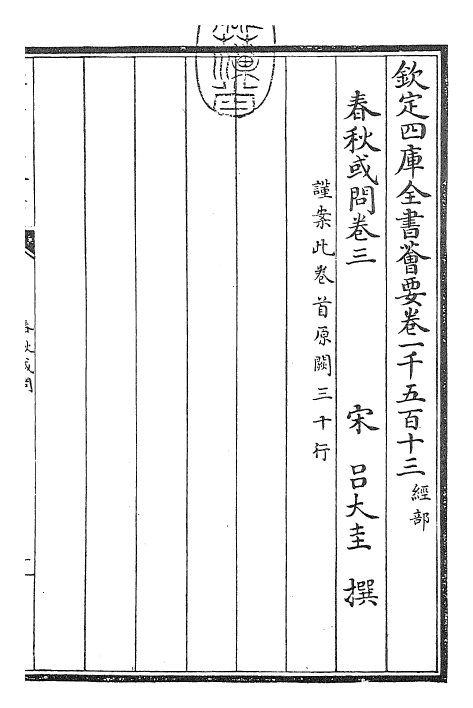 欽定四庫全書薈要卷一千五百十三 經部
春秋或問卷三
宋 呂大圭 撰
謹案此卷首原闕三十行
春秋或問